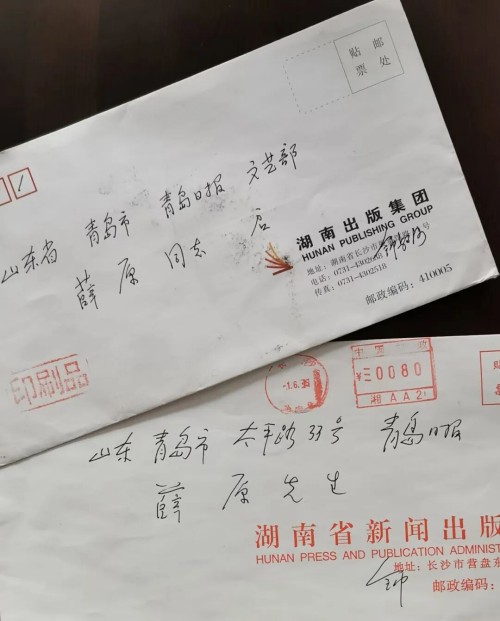 贴 邮
票 处
1
山东省 青岛市 青岛日报 文艺部
薛原 同志 启
湖南出版集团
HUNAN PUBLISHING GROUP
电话: 0731-4302688
传真: 0731-4302518
邮政编码: 410005
印刷品
中国邮政
-1.6.
¥=0080
湘 AA2
贴
山东 青岛市 太平路33号 青岛日报
薛 原 先生
湖南省新闻出版
HUNAN PRESS AND PUBLICATION ADMINIST
地址: 长沙市营盘东
钟 邮政编码: